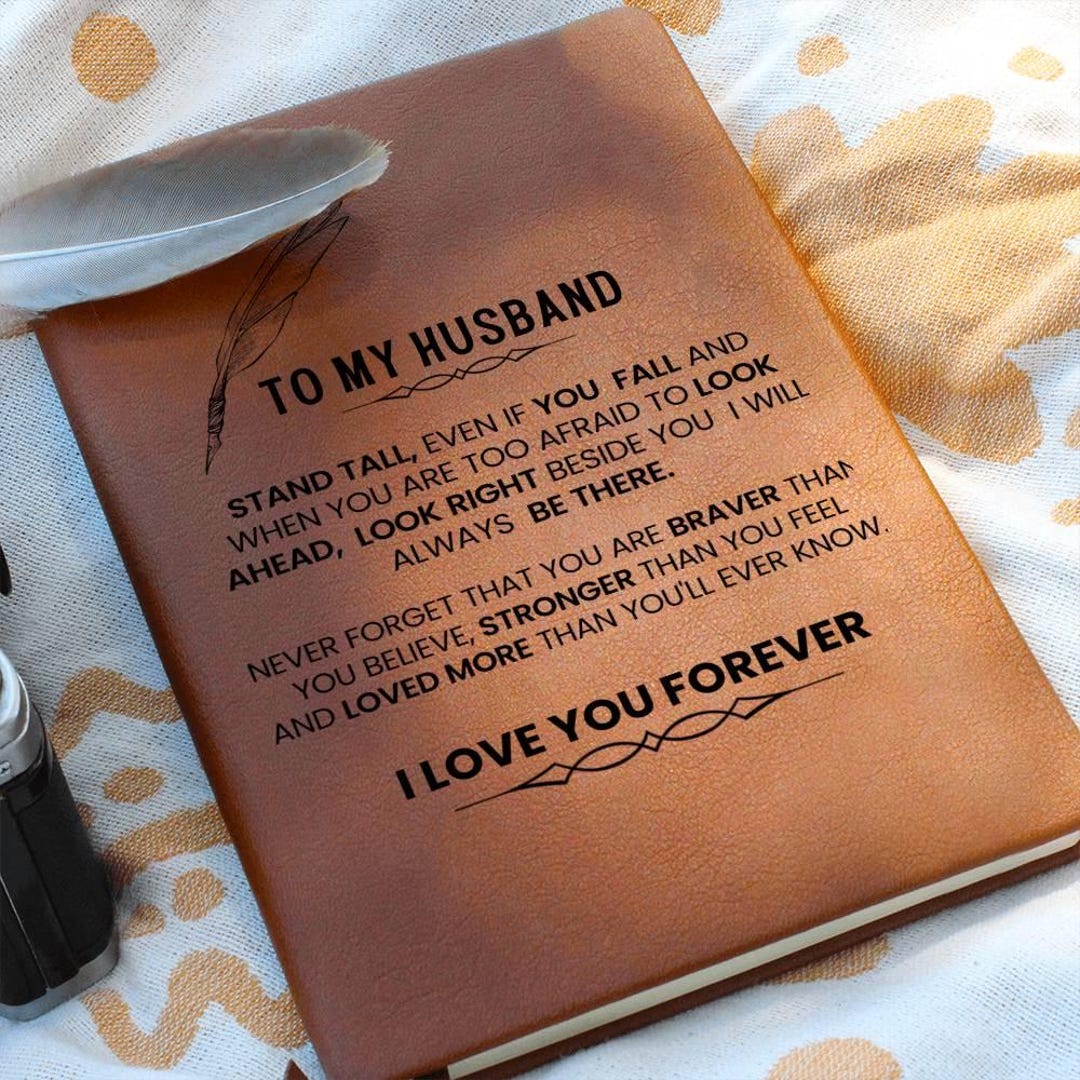 TO MY HUSBAND
STAND TALL, EVEN IF YOU FALL AND
WHEN YOU ARE TOO AFRAID TO LOOK
AHEAD, LOOK RIGHT BESIDE YOU I WILL
ALWAYS BE THERE.
NEVER FORGET THAT YOU ARE BRAVER THAN
YOU BELIEVE, STRONGER THAN YOU FEEL
AND LOVED MORE THAN YOU'LL EVER KNOW.
I LOVE YOU FOREVER